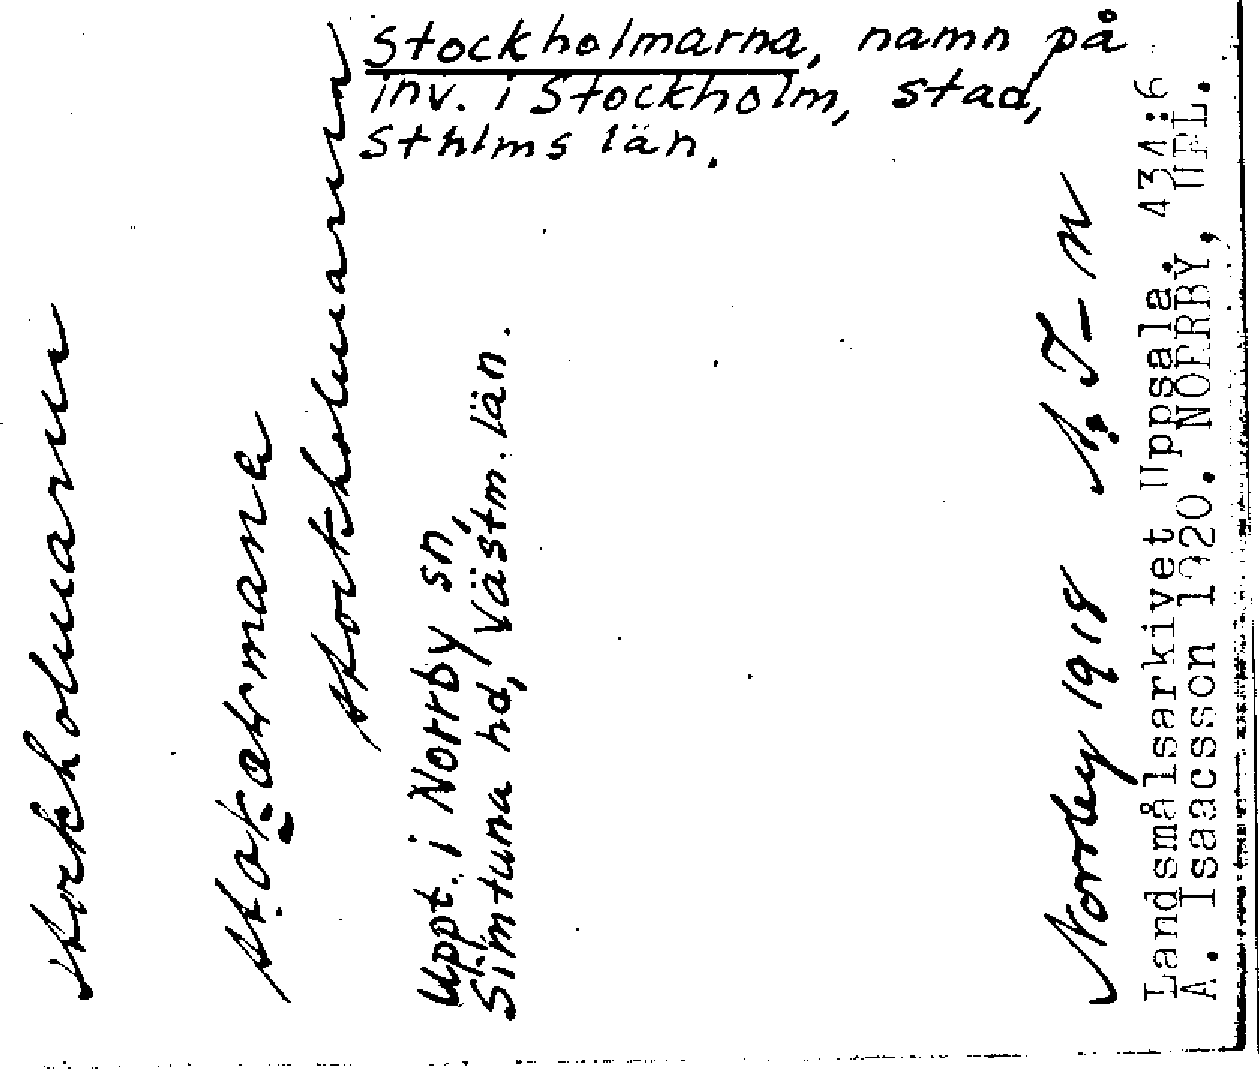 Stockholmarna, namn på
inv. i Stockholm, stad,
Sthlms län.
Stockholmarna
stokarmana
stockholmarna
Uppt. i Norrby sn,
Simtuna hd, Västm. län.
Norrby 1918 A. I-n
Landsmålsarkivet Uppsala. 434:6
A. Isaacsson 1920. NORRBY, UPL.